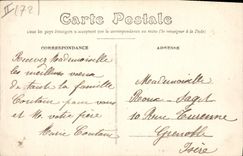 II /72
Carte Postale
Tous les pays étrangers n'acceptent pas la correspondance au recto (Se renseigner à la Poste)
CORRESPONDANCE
ADRESSE
Recevez Mademoiselle
les meilleurs vœux
de toute la famille
Coutain pour vous
et votre père
Marie Coutain
Mademoiselle
Sagot
10 Rue Turenne
Grenoble
Isère